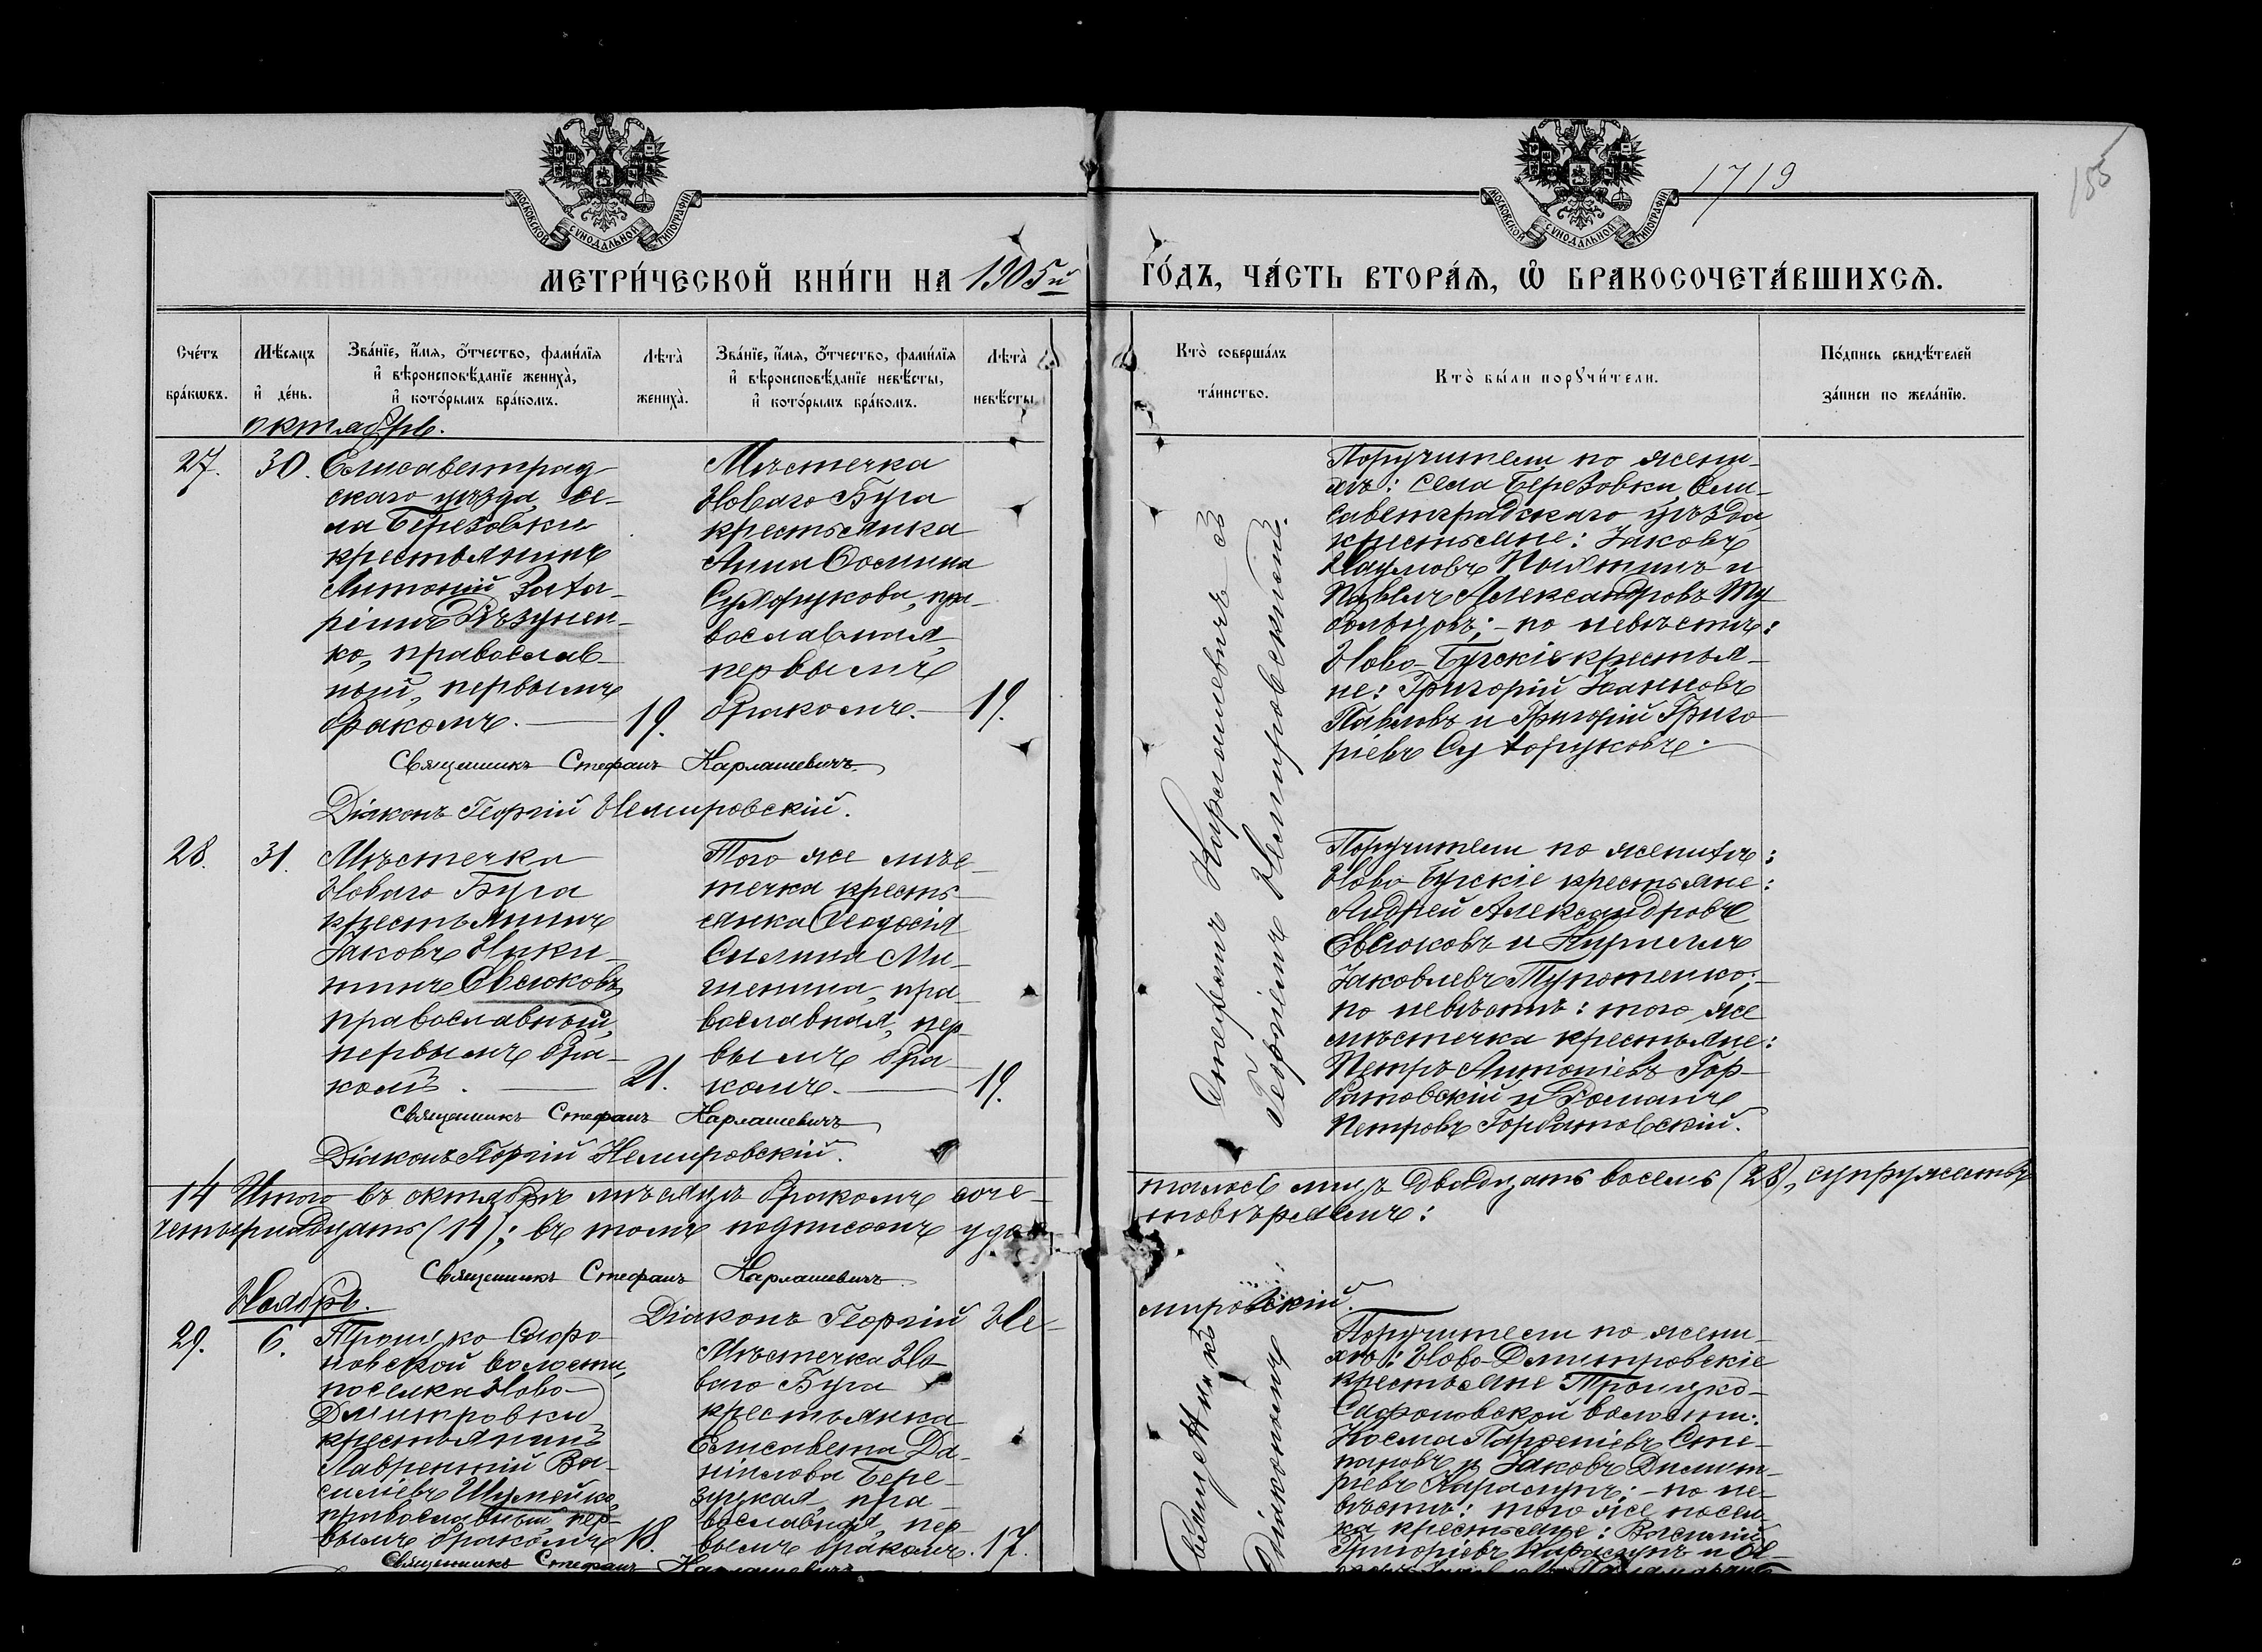 1719
155
МОСКОВСКОЙ СѴНОДАЛЬНОЙ ТИПОГРАФІИ
МОСКОВСКОЙ СѴНОДАЛЬНОЙ ТИПОГРАФІИ
МЕТРИ́ЧЕСКОЙ КНИ́ГИ НА 1905й ГО́ДЪ, ЧА́СТЬ ВТОРА́Я, Ѡ҆ БРАКОСОЧЕТА́ВШИХСѦ.
Сче́тъ
бра́кѡвъ.
Мѣ́сяцъ
и҆ де́нь.
Зва́нїе, и҆́мя, ѻ҆́тчество, фами́лїя
и҆ вѣроисповѣ́данїе жениха̀,
и҆ кото́рымъ бра́комъ.
Лѣта̀
жениха̀.
Зва́нїе, и҆́мя, ѻ҆́тчество, фами́лїя
и҆ вѣроисповѣ́данїе невѣ́сты,
и҆ кото́рымъ бра́комъ.
Лѣта̀
невѣ́сты
Кто̀ соверша́лъ
та́инство.
Кто̀ бы́ли порꙋчи́тели.
По́дпись свидѣ́телей
за́писи по жела́нїю.
октябрь.
27.
30.
Елисаветград-
скаго уѣзда, се-
ла Березовки
крестьянинъ
Антоній Заха-
ріинъ Вѣзунен-
ко, православ-
ный, первымъ
бракомъ.
19.
Мѣстечка
Новаго Буга
крестьянка
Анна Ѳомина
Сухорукова, пра-
вославная,
первымъ
бракомъ.
19.
Поручители по жени-
хѣ: села Березовки, Ели-
саветградскаго уѣзда
крестьяне: Іаковъ
Наумовъ и
Павелъ Александровъ Ту
больцовъ; - по невѣстѣ:
Ново-Бугскіе крестья-
не: Григорій Іоанновъ
Павловъ и Григорій Григо-
ріевъ Сухоруковъ.
Священникъ Стефанъ Карлашевичъ
Діаконъ Георгій Немировскій.
28.
31.
Мѣстечка
Новаго Буга
крестьянинъ
Іаковъ Ники-
тинъ Евсюковъ,
православный,
первымъ бра-
комъ.
21.
Того же мѣс-
течка кресть-
янка Ѳеодосія
Силина Ми-
шенина, пра-
вославная, пер-
вымъ бра-
комъ.
19.
Стефанъ Карлашевичъ съ
Георгіемъ Немировскимъ.
Поручители по женихѣ:
Ново-Бугскіе крестьяне:
Андрей Александровъ
Евсюковъ и Кириллъ
Іаковлевъ Тупотенко; -
по невѣстѣ: того же
мѣстечка крестьяне:
Петръ Антоніевъ Гор-
батовскій и Романъ
Петровъ Горбатовскій.
Священникъ Стефанъ Карлашевичъ
Діаконъ Георгій Немировскій.
14 Итого въ октябрѣ мѣсяцѣ бракомъ соче-
талось лицъ двадцать восемь (28), супружествъ
четырнадцать (14); въ томъ подписомъ удо-
стовѣряемъ:
Священникъ Стефанъ Карлашевичъ
Діаконъ Георгій Не-
мировскій.
Ноябрь.
29.
6.
Троицко-Сафо-
новской волости,
поселка Ново-
Дмитровки
крестьянинъ
Лаврентій Ва-
силіевъ Шумейко,
православный, пер-
вымъ бракомъ
18.
Мѣстечка Но-
ваго Буга
крестьянка
Елисавета Да-
ніилова Бере-
зуцкая, пра-
вославная, пер-
вымъ бракомъ.
17.
Священникъ
Діакономъ
Поручители по жени-
хѣ: Ново-Дмитровскіе
крестьяне Троицко-
Сафоновской волости:
Косма Парѳеніевъ Сте-
пановъ и Іаковъ Димит-
ріевъ Карасумъ; - по не-
вѣстѣ: того же посел-
ка крестьяне: Василій
Григоріевъ
Священникъ Стефанъ Карлашевичъ